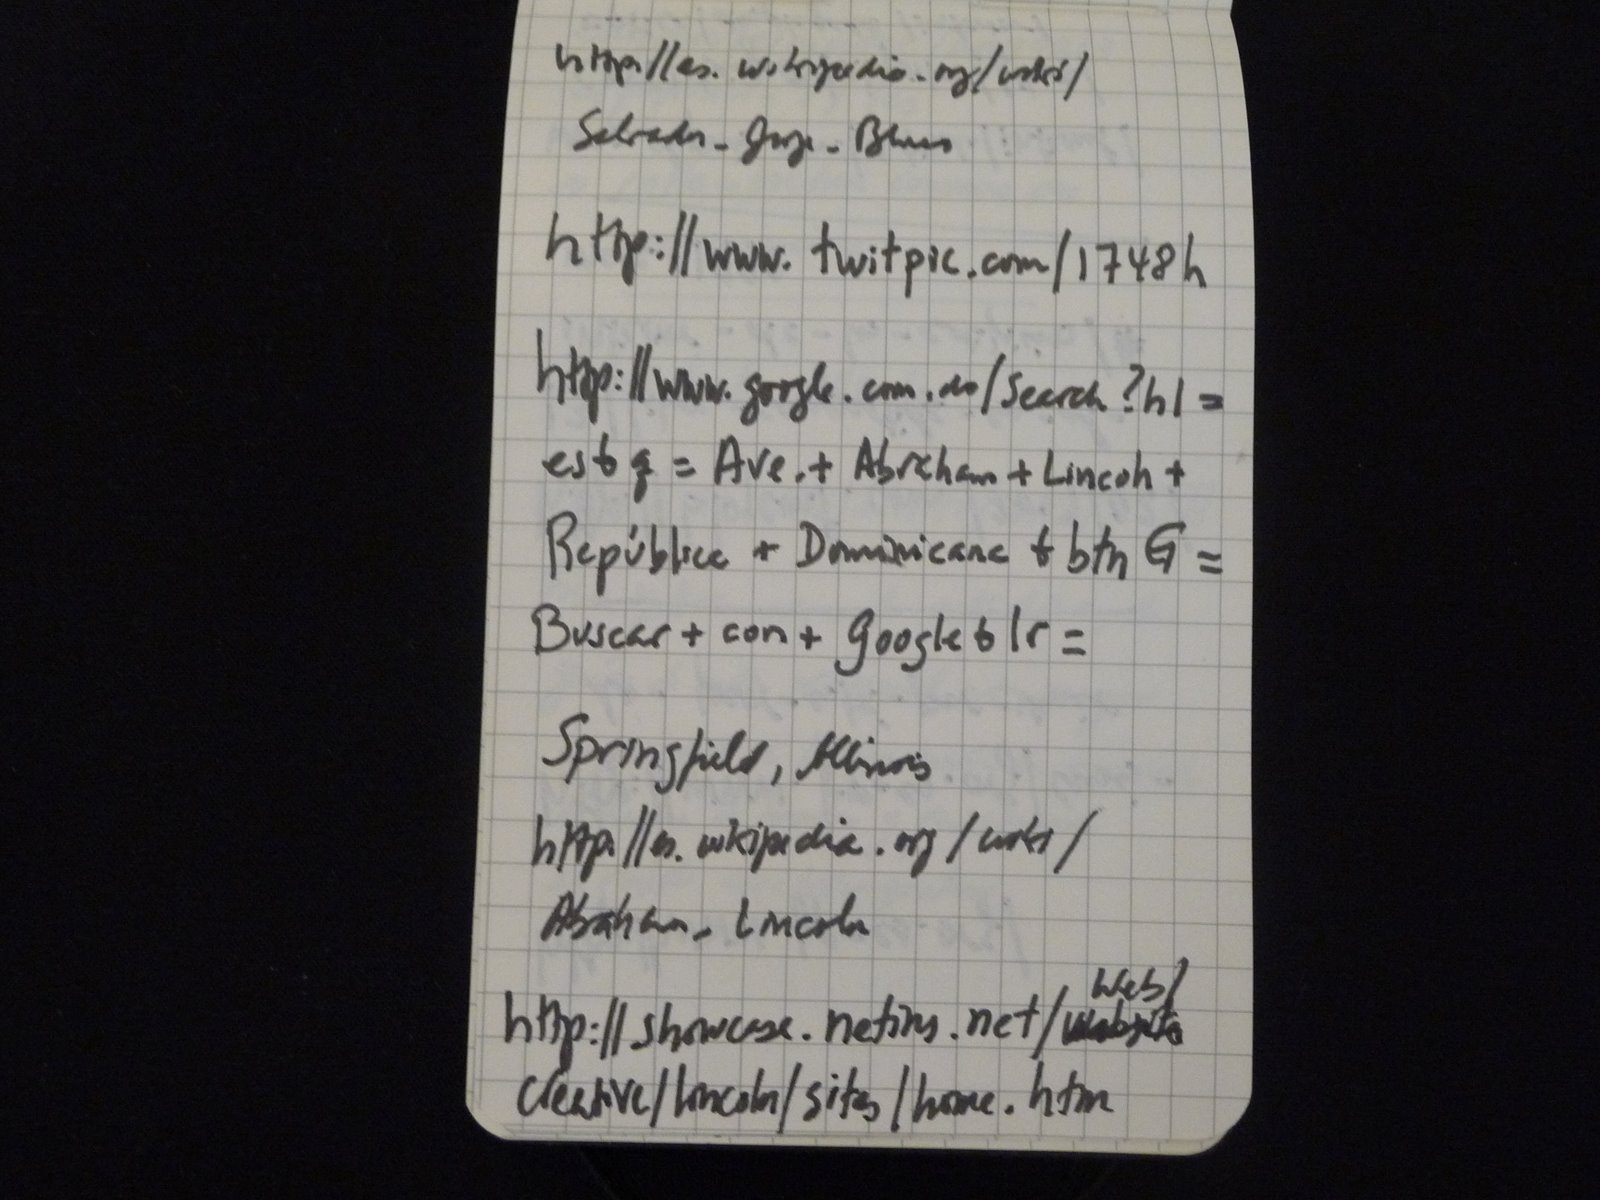 http://es.wikipedia.org/wiki/
Salvador_Jorge_Blanco
http://www.twitpic.com/1748h
http://www.google.com.do/search?hl=
es&q=Ave.+Abraham+Lincoln+
República+Dominicana&btnG=
Buscar+con+Google&lr=
Springfield, Illinois
http://es.wikipedia.org/wiki/
Abraham_Lincoln
web/
http://showcase.netins.net/
creative/lincoln/sites/home.htm